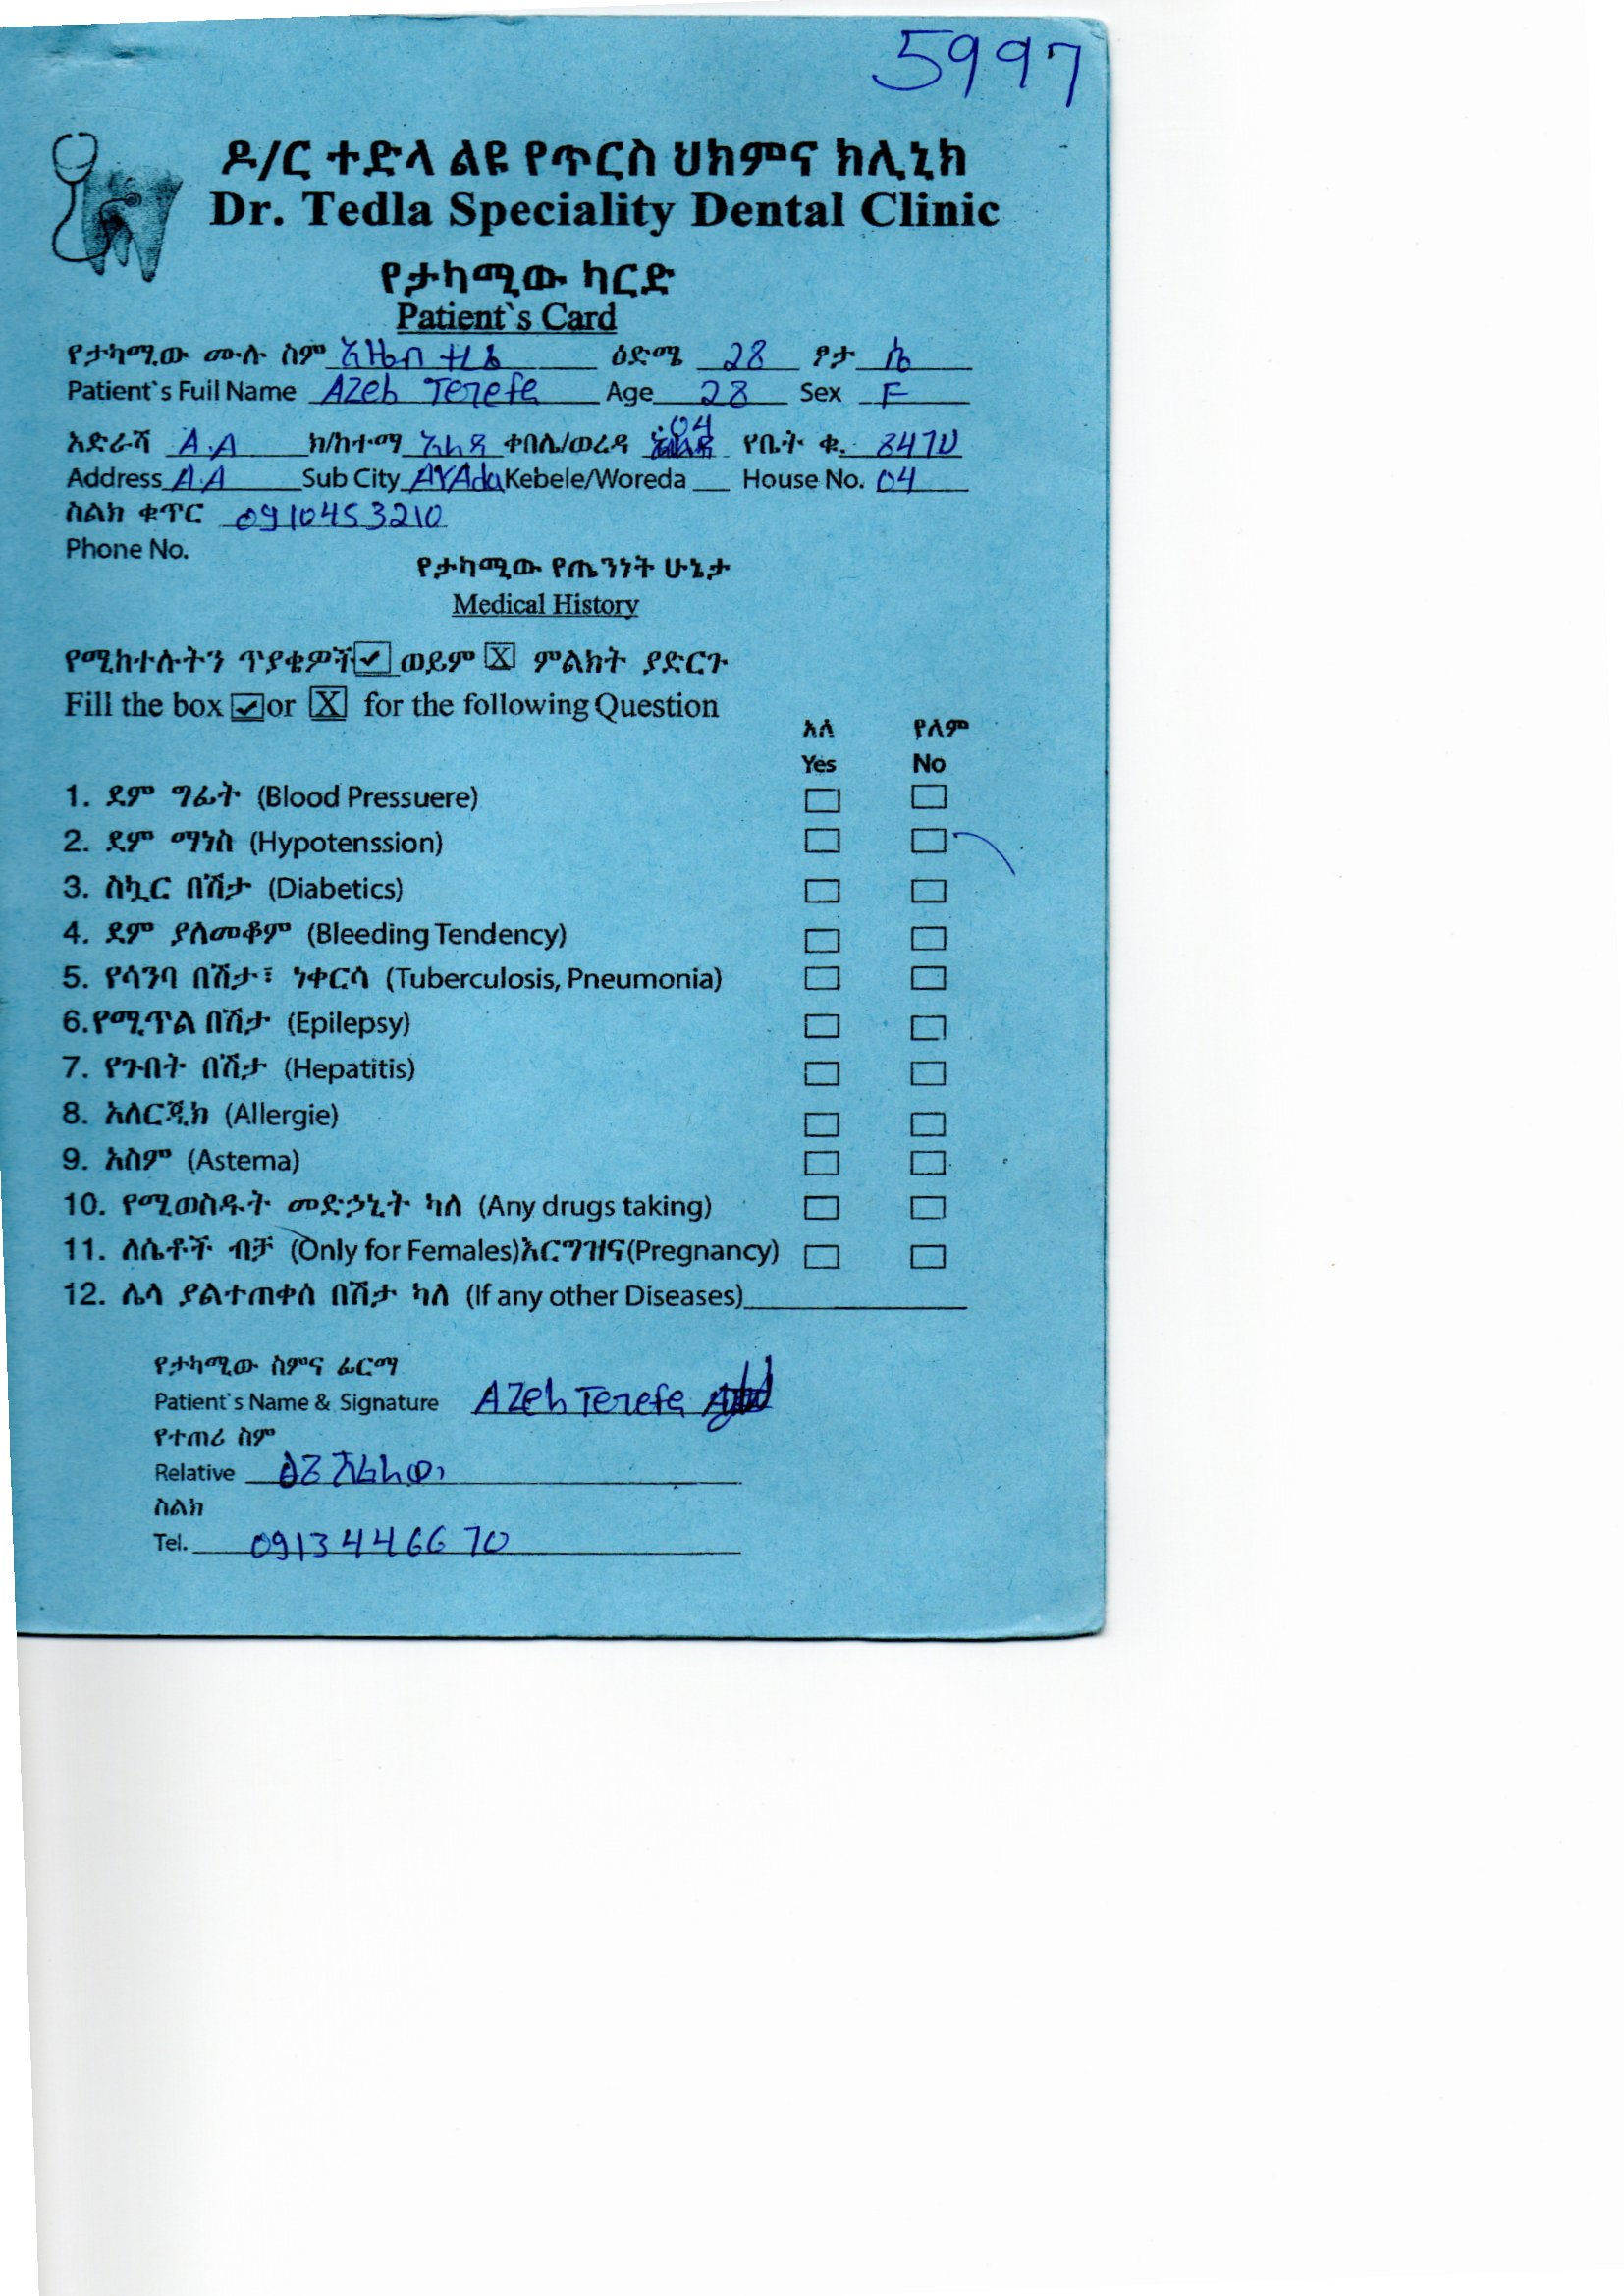 5997
ዶ/ር ተድላ ልዩ የጥርስ ህክምና ክሊኒክ
Dr. Tedla Speciality Dental Clinic
የታካሚው ካርድ
Patient`s Card
የታካሚው ሙሉ ስም አዜብ ተረፈ ዕድሜ 28 ፆታ ሴ
Patient`s Full Name Azeb Terefe Age 28 Sex F
አድራሻ A.A ክ/ከተማ አራዳ ቀበሌ/ወረዳ 04 የቤት ቁ. 847
Address A.A Sub City Kebele/Woreda House No. 04
ስልክ ቁጥር 0910453210
Phone No.
የታካሚው የጤንነት ሁኔታ
Medical History
የሚከተሉትን ጥያቄዎች ✓ ወይም X ምልክት ያድርጉ
Fill the box ✓ or X for the following Question
አለ የለም
Yes No
1. ደም ግፊት (Blood Pressuere)
2. ደም ማነስ (Hypotenssion)
3. ስኳር በሽታ (Diabetics)
4. ደም ያለመቆም (Bleeding Tendency)
5. የሳንባ በሽታ፣ ነቀርሳ (Tuberculosis, Pneumonia)
6.የሚጥል በሽታ (Epilepsy)
7. የጉበት በሽታ (Hepatitis)
8. አለርጂክ (Allergie)
9. አስም (Astema)
10. የሚወስዱት መድኃኒት ካለ (Any drugs taking)
11. ለሴቶች ብቻ (Only for Females)እርግዝና(Pregnancy)
12. ሌላ ያልተጠቀሰ በሽታ ካለ (If any other Diseases)
የታካሚው ስምና ፊርማ
Patient`s Name & Signature Azeb Terefe
የተጠሪ ስም
Relative
ስልክ
Tel. 0913446670